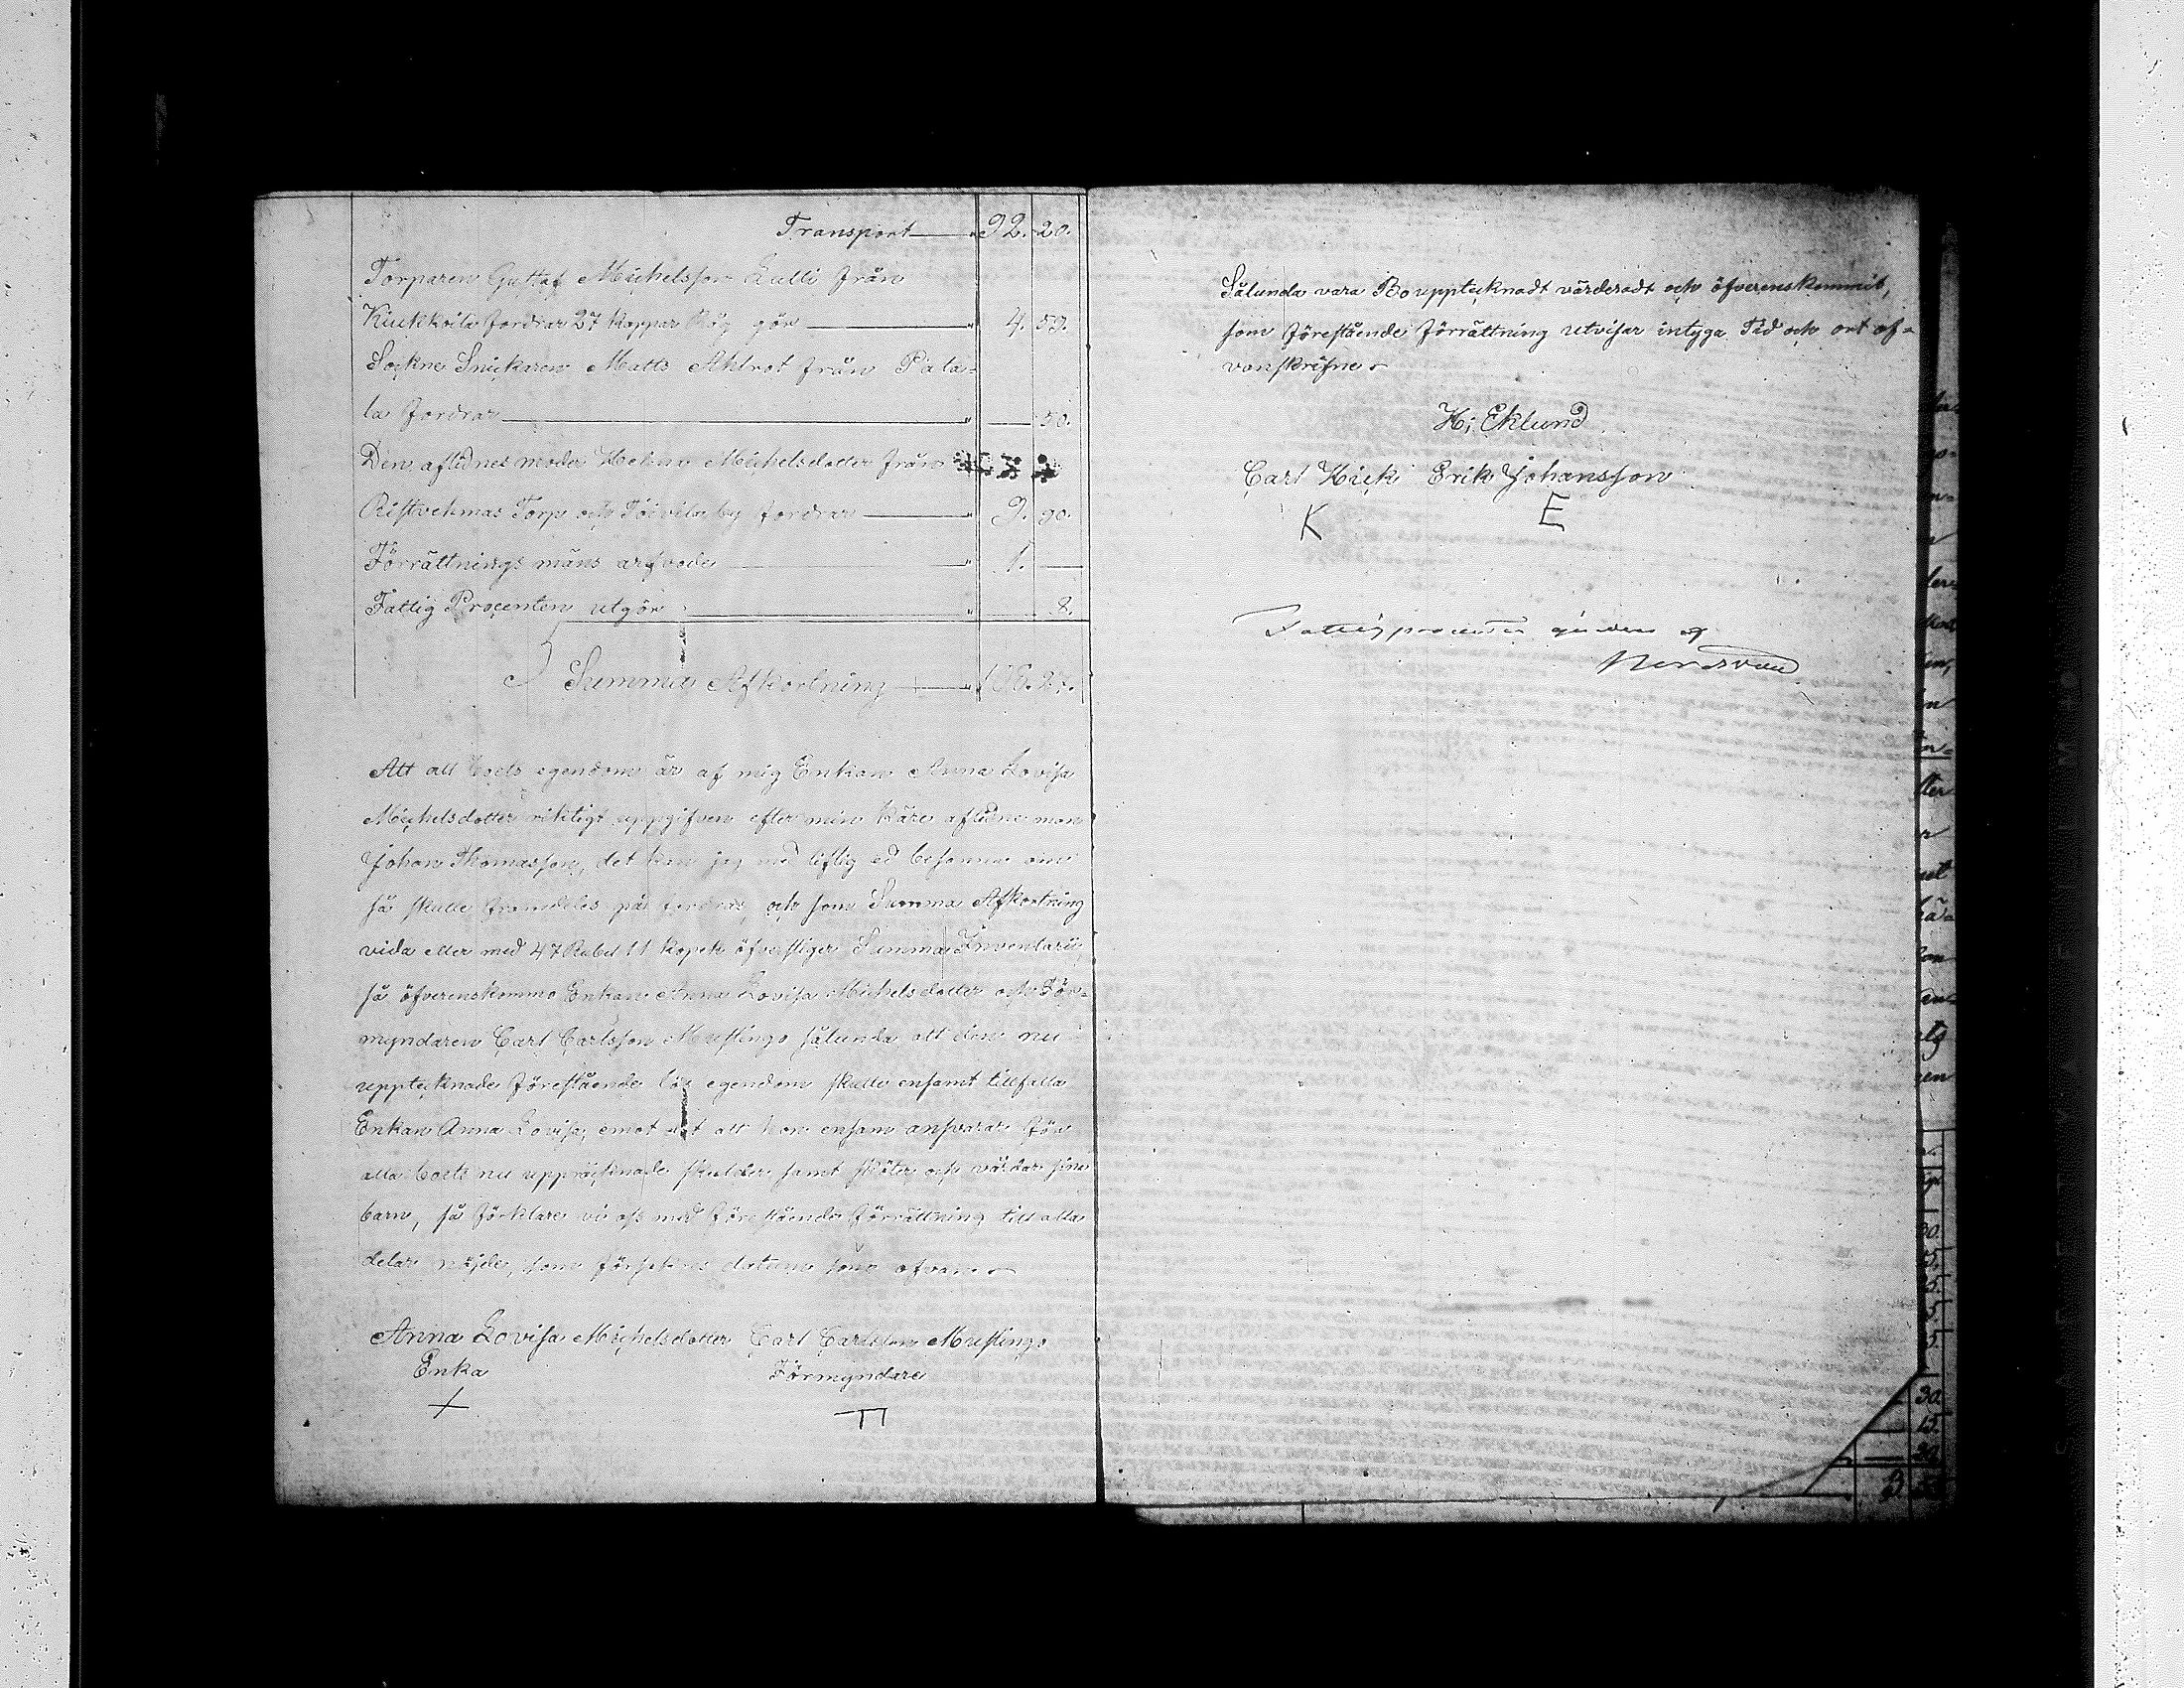 Transport 92. 20.
Torparen Gustaf Michelsson Lalli från
Kiukkoila fordrar 27 kappar Råg gör 4. 50.
Sockne Snickaren Matts Ahlrot från Pala-
la fordrar 50.
Den aflidnes moder Helena Michelsdotter från
Ristvehmas Torp och Toivila by fordrar 9. 90.
Förrättnings mäns arfvode 1.
Fattig Procenten utgör 8.
Summa Afkortning
Att all boets egendom är af mig Enkan Anna Lovisa
Michelsdotter riktigt uppgifven efter min käre aflidne man
Johan Thomasson, det kan jag med liflig ed besanna om
så skulle framdeles på fordras, och som Summa Afkortning
vida eller med 47 Rubel 11 kopek öfverstiger Summa Inventarii,
så öfverenskommo Enkan Anna Lovisa Michelsdotter och För-
myndaren Carl Carlsson Mustingo sålunda att den nu
upptecknade förestående lös egendom skulle ensamt tillfalla
Enkan Anna Lovisa, emot det att hon ensam ansvarar för
alla boets nu uppräknade skulder samt sköter och vårdar sina
barn, så förklare vi oss med förestående förrättning till alla
delar nöjde, som försäkras datum som ofvan
Anna Lovisa Michelsdotter Carl Carlsson Mustingo
Enka Förmyndare
Sålunda vara Bo upptecknadt värderadt och öfverenskommit,
som förestående förrättning utvisar intyga Tid och ort of-
vanskrifne
H; Eklund
Carl Kick Erik Johansson
K E
Fattigprocenten